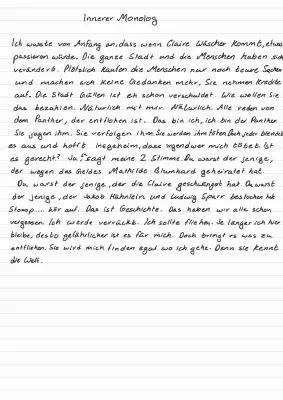 Innerer Monolog
Ich wusste von Anfang an, dass wenn Claire Wäscher kommt, etwas
passieren würde. Die ganze Stadt und die Menschen haben sich
verändert. Plötzlich kaufen die Menschen nur noch teure Sachen
und machen sich keine Gedanken mehr, Sie nehmen Kredite
auf. Die Stadt Güllen ist eh schon verschuldet. Wie wollen Sie
das bezahlen. Natürlich mit mir. Natürlich. Alle reden von
dem Panther, der entflohen ist. Das bin ich, ich bin der Panther
Sie jagen ihm. Sie verfolgen ihm. Sie werden ihm töten. Doch jeder
es aus und hofft insgeheim, dass irgendwer mich tötet. Ist
es gerecht? Ja sagt meine 2 Stimme. Du warst der jenige,
der wegen des Geldes Mathilde Blumhard geheiratet hat.
Du warst der jenige, der die Claire geschwängert hat. Du warst
der jenige, der Jakob Hühnlein und Ludwig Sparr bestochen hat
Stopp.... hör auf. Das ist Geschichte. Das haben wir alle schon
vergessen. Ich werde verrückt. Ich sollte fliehen. Je länger ich hier
bleibe, desto gefährlicher ist es für mich. Doch bringt es was zu
entfliehen. Sie wird mich finden egal wo ich gehe. Denn sie kennt
die Welt.